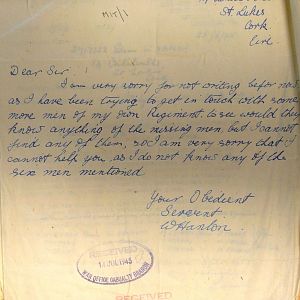 M15/1
St. Lukes
Cork
Eire
Dear Sir
I am very sorry for not writing before now
as I have been trying to get in touch with some
more men of my own Regiment to see would they
know anything of the missing men but I cannot
find any of them, so I am very sorry that I
cannot help you as I do not know any of the
six men mentioned
Your Obedient
Servant
W Hanlon.
RECEIVED
14 JUL 1945
WAR OFFICE CASUALTY BRANCH
RECEIVED